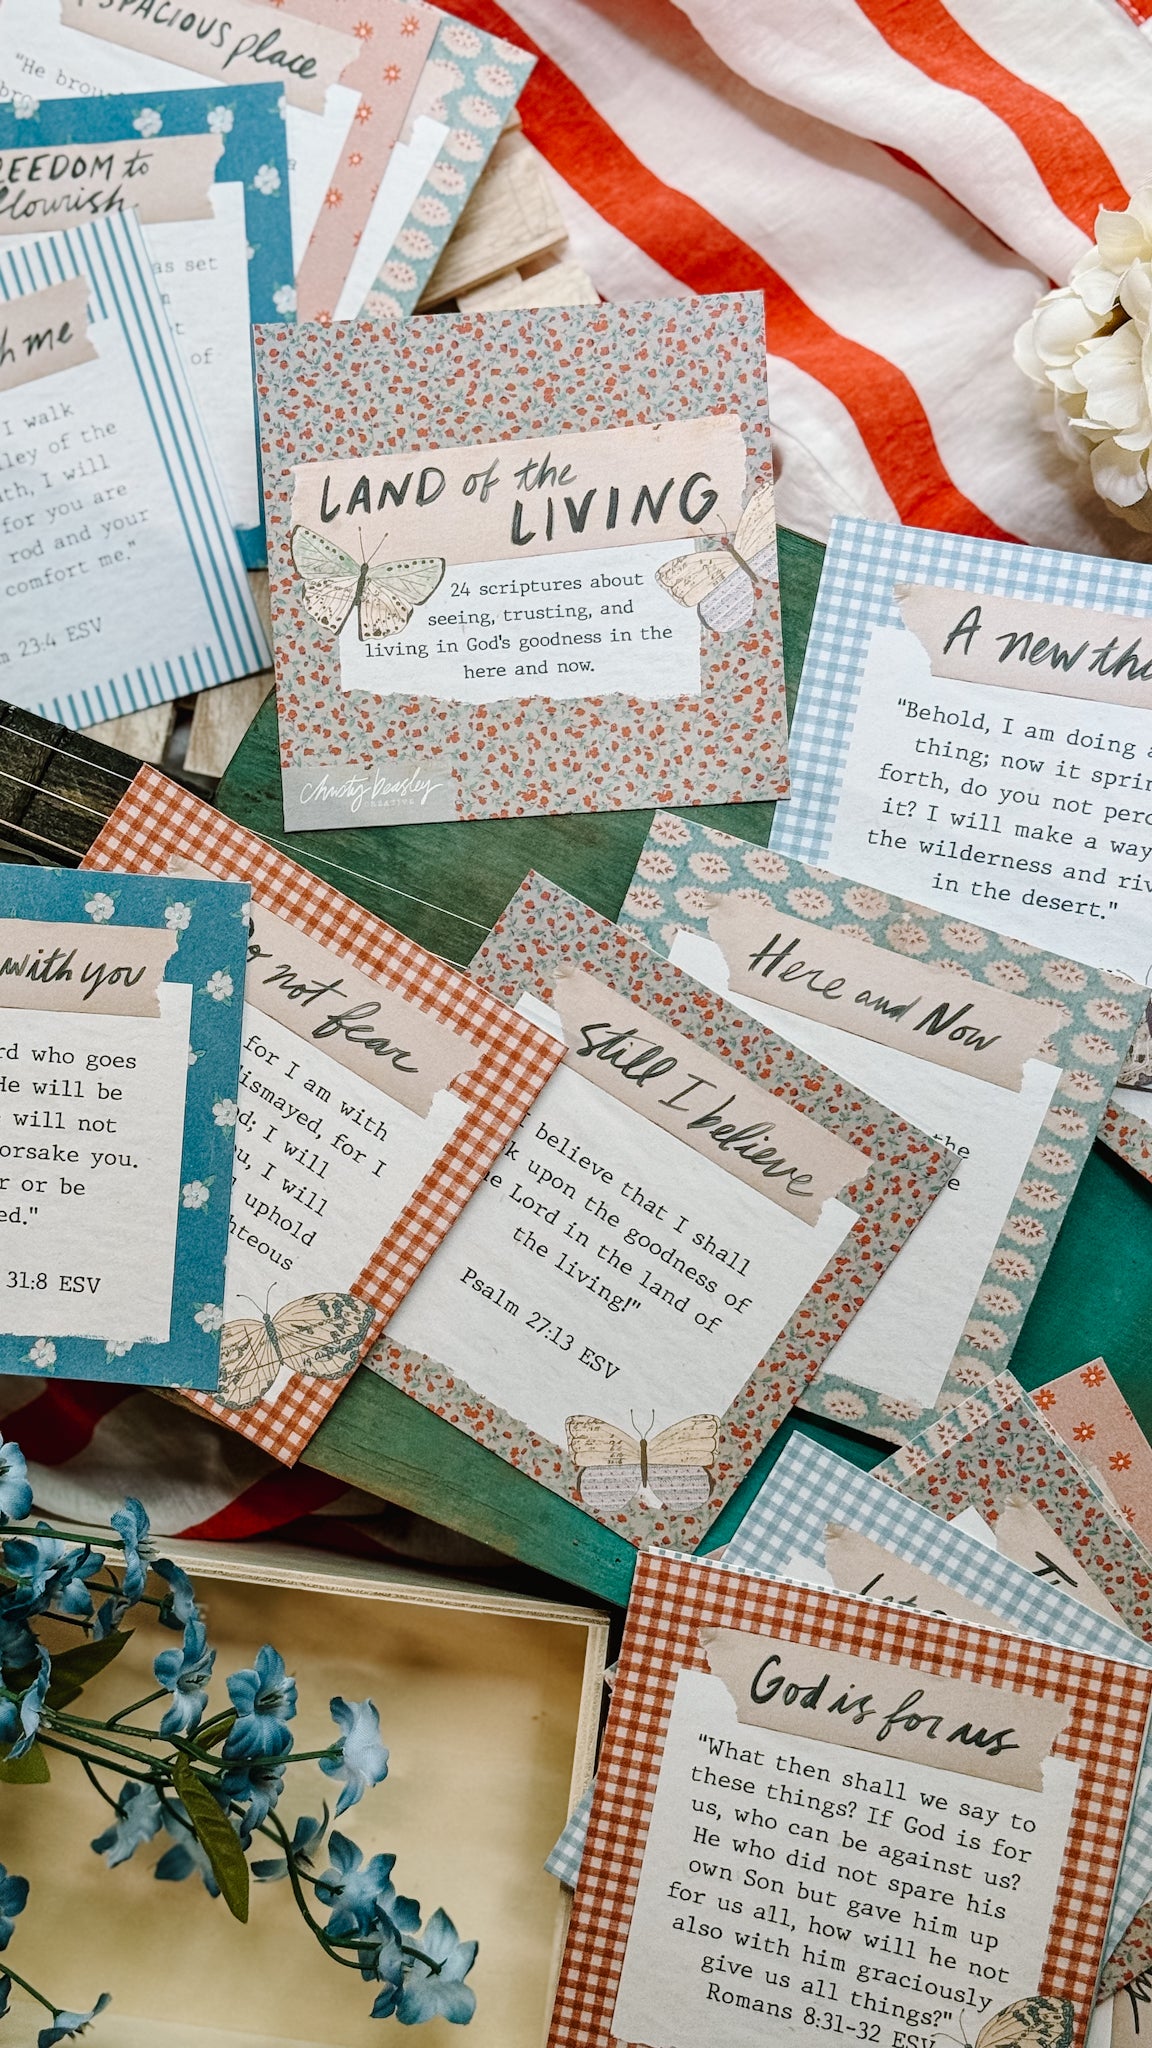 SPACIOUS place
"He
FREEDOM to
flourish
as set
of
h me
I walk
lley of the
th, I will
for you are
rod and your
comfort me."
m 23:4 ESV
LAND of the
LIVING
24 scriptures about
seeing, trusting, and
living in God's goodness in the
here and now.
christy beasley
CREATIVE
A new thi
"Behold, I am doing a
thing; now it sprin
forth, do you not perc
it? I will make a way
the wilderness and riv
in the desert."
with you
rd who goes
He will be
will not
orsake you.
r or be
ed."
31:8 ESV
Do not fear
for I am with
ismayed, for I
d; I will
u, I will
uphold
hteous
Still I believe
I believe that I shall
k upon the goodness of
e Lord in the land of
the living!"
Psalm 27:13 ESV
Here and Now
the
e
God is for us
"What then shall we say to
these things? If God is for
us, who can be against us?
He who did not spare his
own Son but gave him up
for us all, how will he not
also with him graciously
give us all things?"
Romans 8:31-32 ESV